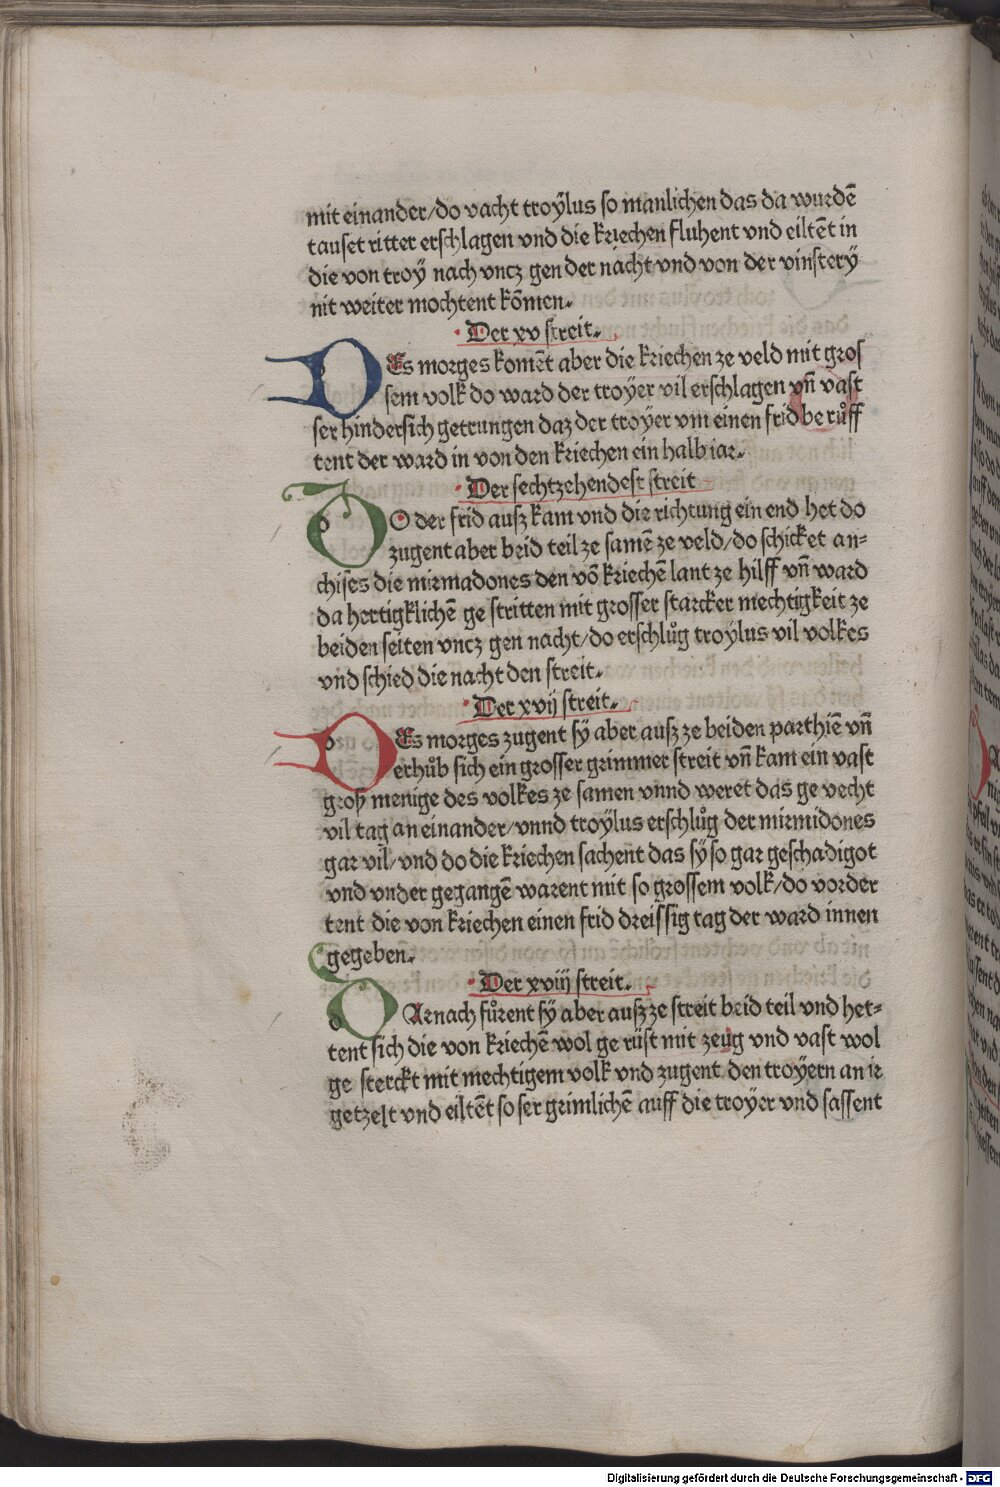 mit einander/do vacht troÿlus so manlichen das da wurdē
tauset ritter erschlagen vnd die kriechen fluhent vnd eiltēt in
die von troÿ nach vncz gen der nacht vnd von der vinstery
nit weiter mochtent kōmen.
Der xv streit.
DEs morges komēt aber die kriechen ze veld mit gros
sem volk do ward der troÿer vil erschlagen vñ vast
ser hindersich getrungen daz der troÿer vm einen frid be růff
tent der ward in von den kriechen ein halb iar.
Der sechtzehendest streit
DO der frid ausz kam vnd die richtung ein end het do
zugent aber beid teil ze samē ze veld/do schicket an=
chises die mirmadones den võ kriechē lant ze hilff vñ ward
da hertigklichē ge stritten mit grosser starcker mechtigkeit ze
beiden seiten vncz gen nacht/do erschlůg troÿlus vil volkes
vnd schied die nacht den streit.
Der xvij streit.
DEs morges zugent sÿ aber ausz ze beiden parthiē vñ
erhůb sich ein grosser grimmer streit vñ kam ein vast
grosz menige des volkes ze samen vnnd weret das ge vecht
vil tag an einander/vnnd troÿlus erschlůg der mirmidones
gar vil/vnd do die kriechen sachent das sÿ so gar geschadigot
vnd vnder gegangē warent mit so grossem volk/do vorder
tent die von kriechen einen frid dreissig tag der ward innen
gegeben.
Der xviij streit.
DArnach fůrent sÿ aber ausz ze streit beid teil vnd het=
tent sich die von kriechē wol ge rüst mit zeug vnd vast wol
ge sterckt mit mechtigem volk vnd zugent den troÿern an ir
getzelt vnd eiltēt so ser grimlichē auff die troÿer vnd sassent
Digitalisierung gefördert durch die Deutsche Forschungsgemeinschaft - DFG